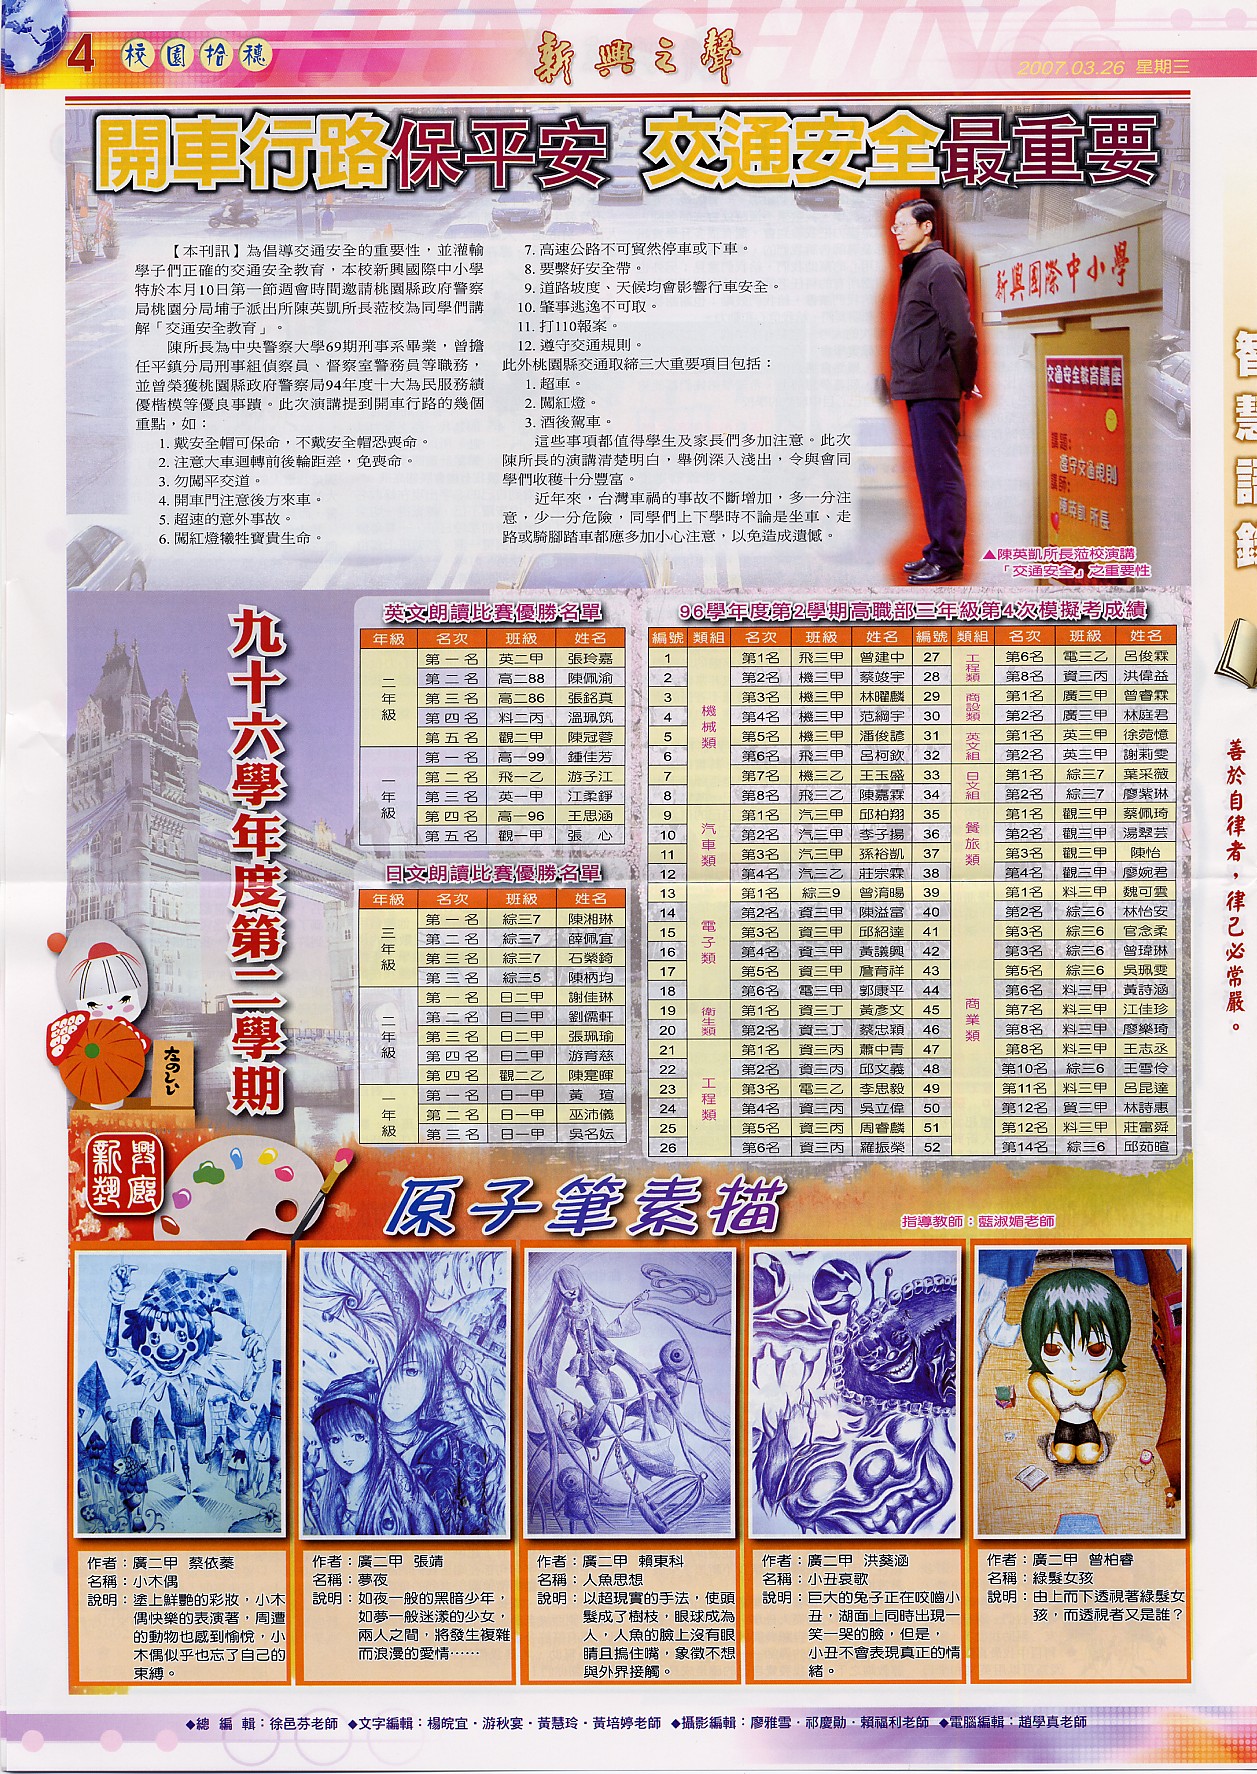 4 校園拾穗
新興之聲
2007.03.26 星期三
開車行路保平安 交通安全最重要
【本刊訊】為倡導交通安全的重要性，並灌輸
學子們正確的交通安全教育，本校新興國際中小學
特於本月10日第一節週會時間邀請桃園縣政府警察
局桃園分局埔子派出所陳英凱所長蒞校為同學們講
解「交通安全教育」。
陳所長為中央警察大學69期刑事系畢業，曾擔
任平鎮分局刑事組偵察員、督察室警務員等職務，
並曾榮獲桃園縣政府警察局94年度十大為民服務績
優楷模等優良事蹟。此次演講提到開車行路的幾個
重點，如：
1. 戴安全帽可保命，不戴安全帽恐喪命。
2. 注意大車迴轉前後輪距差，免喪命。
3. 勿闖平交道。
4. 開車門注意後方來車。
5. 超速的意外事故。
6. 闖紅燈犧牲寶貴生命。
7. 高速公路不可貿然停車或下車。
8. 要繫好安全帶。
9. 道路坡度、天候均會影響行車安全。
10. 肇事逃逸不可取。
11. 打110報案。
12. 遵守交通規則。
此外桃園縣交通取締三大重要項目包括：
1. 超車。
2. 闖紅燈。
3. 酒後駕車。
這些事項都值得學生及家長們多加注意。此次
陳所長的演講清楚明白，舉例深入淺出，令與會同
學們收穫十分豐富。
近年來，台灣車禍的事故不斷增加，多一分注
意，少一分危險，同學們上下學時不論是坐車、走
路或騎腳踏車都應多加小心注意，以免造成遺憾。
新興國際中小學
交通安全教育講座
講題：
遵守交通規則
講師：
陳英凱 所長
▲陳英凱所長蒞校演講
「交通安全」之重要性
九十六學年度第二學期
英文朗讀比賽優勝名單
年級 名次 班級 姓名
二年級
第一名 英二甲 張玲嘉
第二名 高二88 陳佩渝
第三名 高二86 張銘真
第四名 料二丙 溫珮筑
第五名 觀二甲 陳冠蓉
一年級
第一名 高一99 鍾佳芳
第二名 飛一乙 游子江
第三名 英一甲 江柔錚
第四名 高一96 王思涵
第五名 觀一甲 張心
日文朗讀比賽優勝名單
年級 名次 班級 姓名
三年級
第一名 綜三7 陳湘琳
第二名 綜三7 薛佩宜
第三名 綜三7 石榮錡
第三名 綜三5 陳柄均
二年級
第一名 日二甲 謝佳琳
第二名 日二甲 劉儒軒
第三名 日二甲 張珮瑜
第四名 日二甲 游育慈
第四名 觀二乙 陳寔暉
一年級
第一名 日一甲 黃瑄
第二名 日一甲 巫沛儀
第三名 日一甲 吳名妘
96學年度第2學期高職部三年級第4次模擬考成績
編號 類組 名次 班級 姓名 編號 類組 名次 班級 姓名
機械類 汽車類 電子類 衛生類 工程類
工程類 商設類 英文組 日文組 餐旅類 商業類
1 第1名 飛三甲 曾建中 27 第6名 電三乙 呂俊霖
2 第2名 機三甲 蔡竣宇 28 第8名 資三丙 洪偉益
3 第3名 機三甲 林曜麟 29 第1名 廣三甲 曾睿霖
4 第4名 機三甲 范綱宇 30 第2名 廣三甲 林庭君
5 第5名 機三甲 潘俊諺 31 第1名 英三甲 徐菀憶
6 第6名 飛三甲 呂柯欽 32 第2名 英三甲 謝莉雯
7 第7名 機三乙 王玉盛 33 第1名 綜三7 葉采薇
8 第8名 飛三乙 陳嘉霖 34 第2名 綜三7 廖紫琳
9 第1名 汽三甲 邱柏翔 35 第1名 觀三甲 蔡佩琦
10 第2名 汽三甲 李子揚 36 第2名 觀三甲 湯翠芸
11 第3名 汽三甲 孫裕凱 37 第3名 觀三甲 陳怡
12 第4名 汽三乙 莊宗霖 38 第4名 觀三甲 廖婉君
13 第1名 綜三9 曾淯暘 39 第1名 料三甲 魏可雲
14 第2名 資三甲 陳溢富 40 第2名 綜三6 林怡安
15 第3名 資三甲 邱紹達 41 第3名 綜三6 官念柔
16 第4名 資三甲 黃議興 42 第3名 綜三6 曾瑋琳
17 第5名 資三甲 詹育祥 43 第5名 綜三6 吳珮雯
18 第6名 電三甲 郭康平 44 第6名 料三甲 黃詩涵
19 第1名 資三丁 黃彥文 45 第7名 料三甲 江佳珍
20 第2名 資三丁 蔡忠穎 46 第8名 料三甲 廖樂琦
21 第1名 資三丙 蕭中青 47 第8名 料三甲 王志丞
22 第2名 資三丙 邱文義 48 第10名 綜三6 王雪伶
23 第3名 電三乙 李思毅 49 第11名 料三甲 呂昆達
24 第4名 資三丙 吳立偉 50 第12名 貿三甲 林詩惠
25 第5名 資三丙 周睿麟 51 第12名 料三甲 莊富舜
26 第6名 資三丙 羅振榮 52 第14名 綜三6 邱茹暄
たのしい
新興藝廊
原子筆素描
指導教師：藍淑媚老師
作者：廣二甲 蔡依蓁
名稱：小木偶
說明：塗上鮮艷的彩妝，小木
偶快樂的表演著，周遭
的動物也感到愉悅，小
木偶似乎也忘了自己的
束縛。
作者：廣二甲 張靖
名稱：夢夜
說明：如夜一般的黑暗少年，
如夢一般迷漾的少女，
兩人之間，將發生複雜
而浪漫的愛情……
作者：廣二甲 賴東科
名稱：人魚思想
說明：以超現實的手法，使頭
髮成了樹枝，眼球成為
人，人魚的臉上沒有眼
睛且摀住嘴，象徵不想
與外界接觸。
作者：廣二甲 洪葵涵
名稱：小丑哀歌
說明：巨大的兔子正在咬嚙小
丑，湖面上同時出現一
笑一哭的臉，但是，
小丑不會表現真正的情
緒。
作者：廣二甲 曾柏睿
名稱：綠髮女孩
說明：由上而下透視著綠髮女
孩，而透視者又是誰？
◆總編輯：徐邑芬老師 ◆文字編輯：楊皖宜・游秋宴・黃慧玲・黃培婷老師 ◆攝影編輯：廖雅雪・祁慶勛・賴福利老師 ◆電腦編輯：趙學真老師
智慧語錄
善於自律者，律己必常嚴。